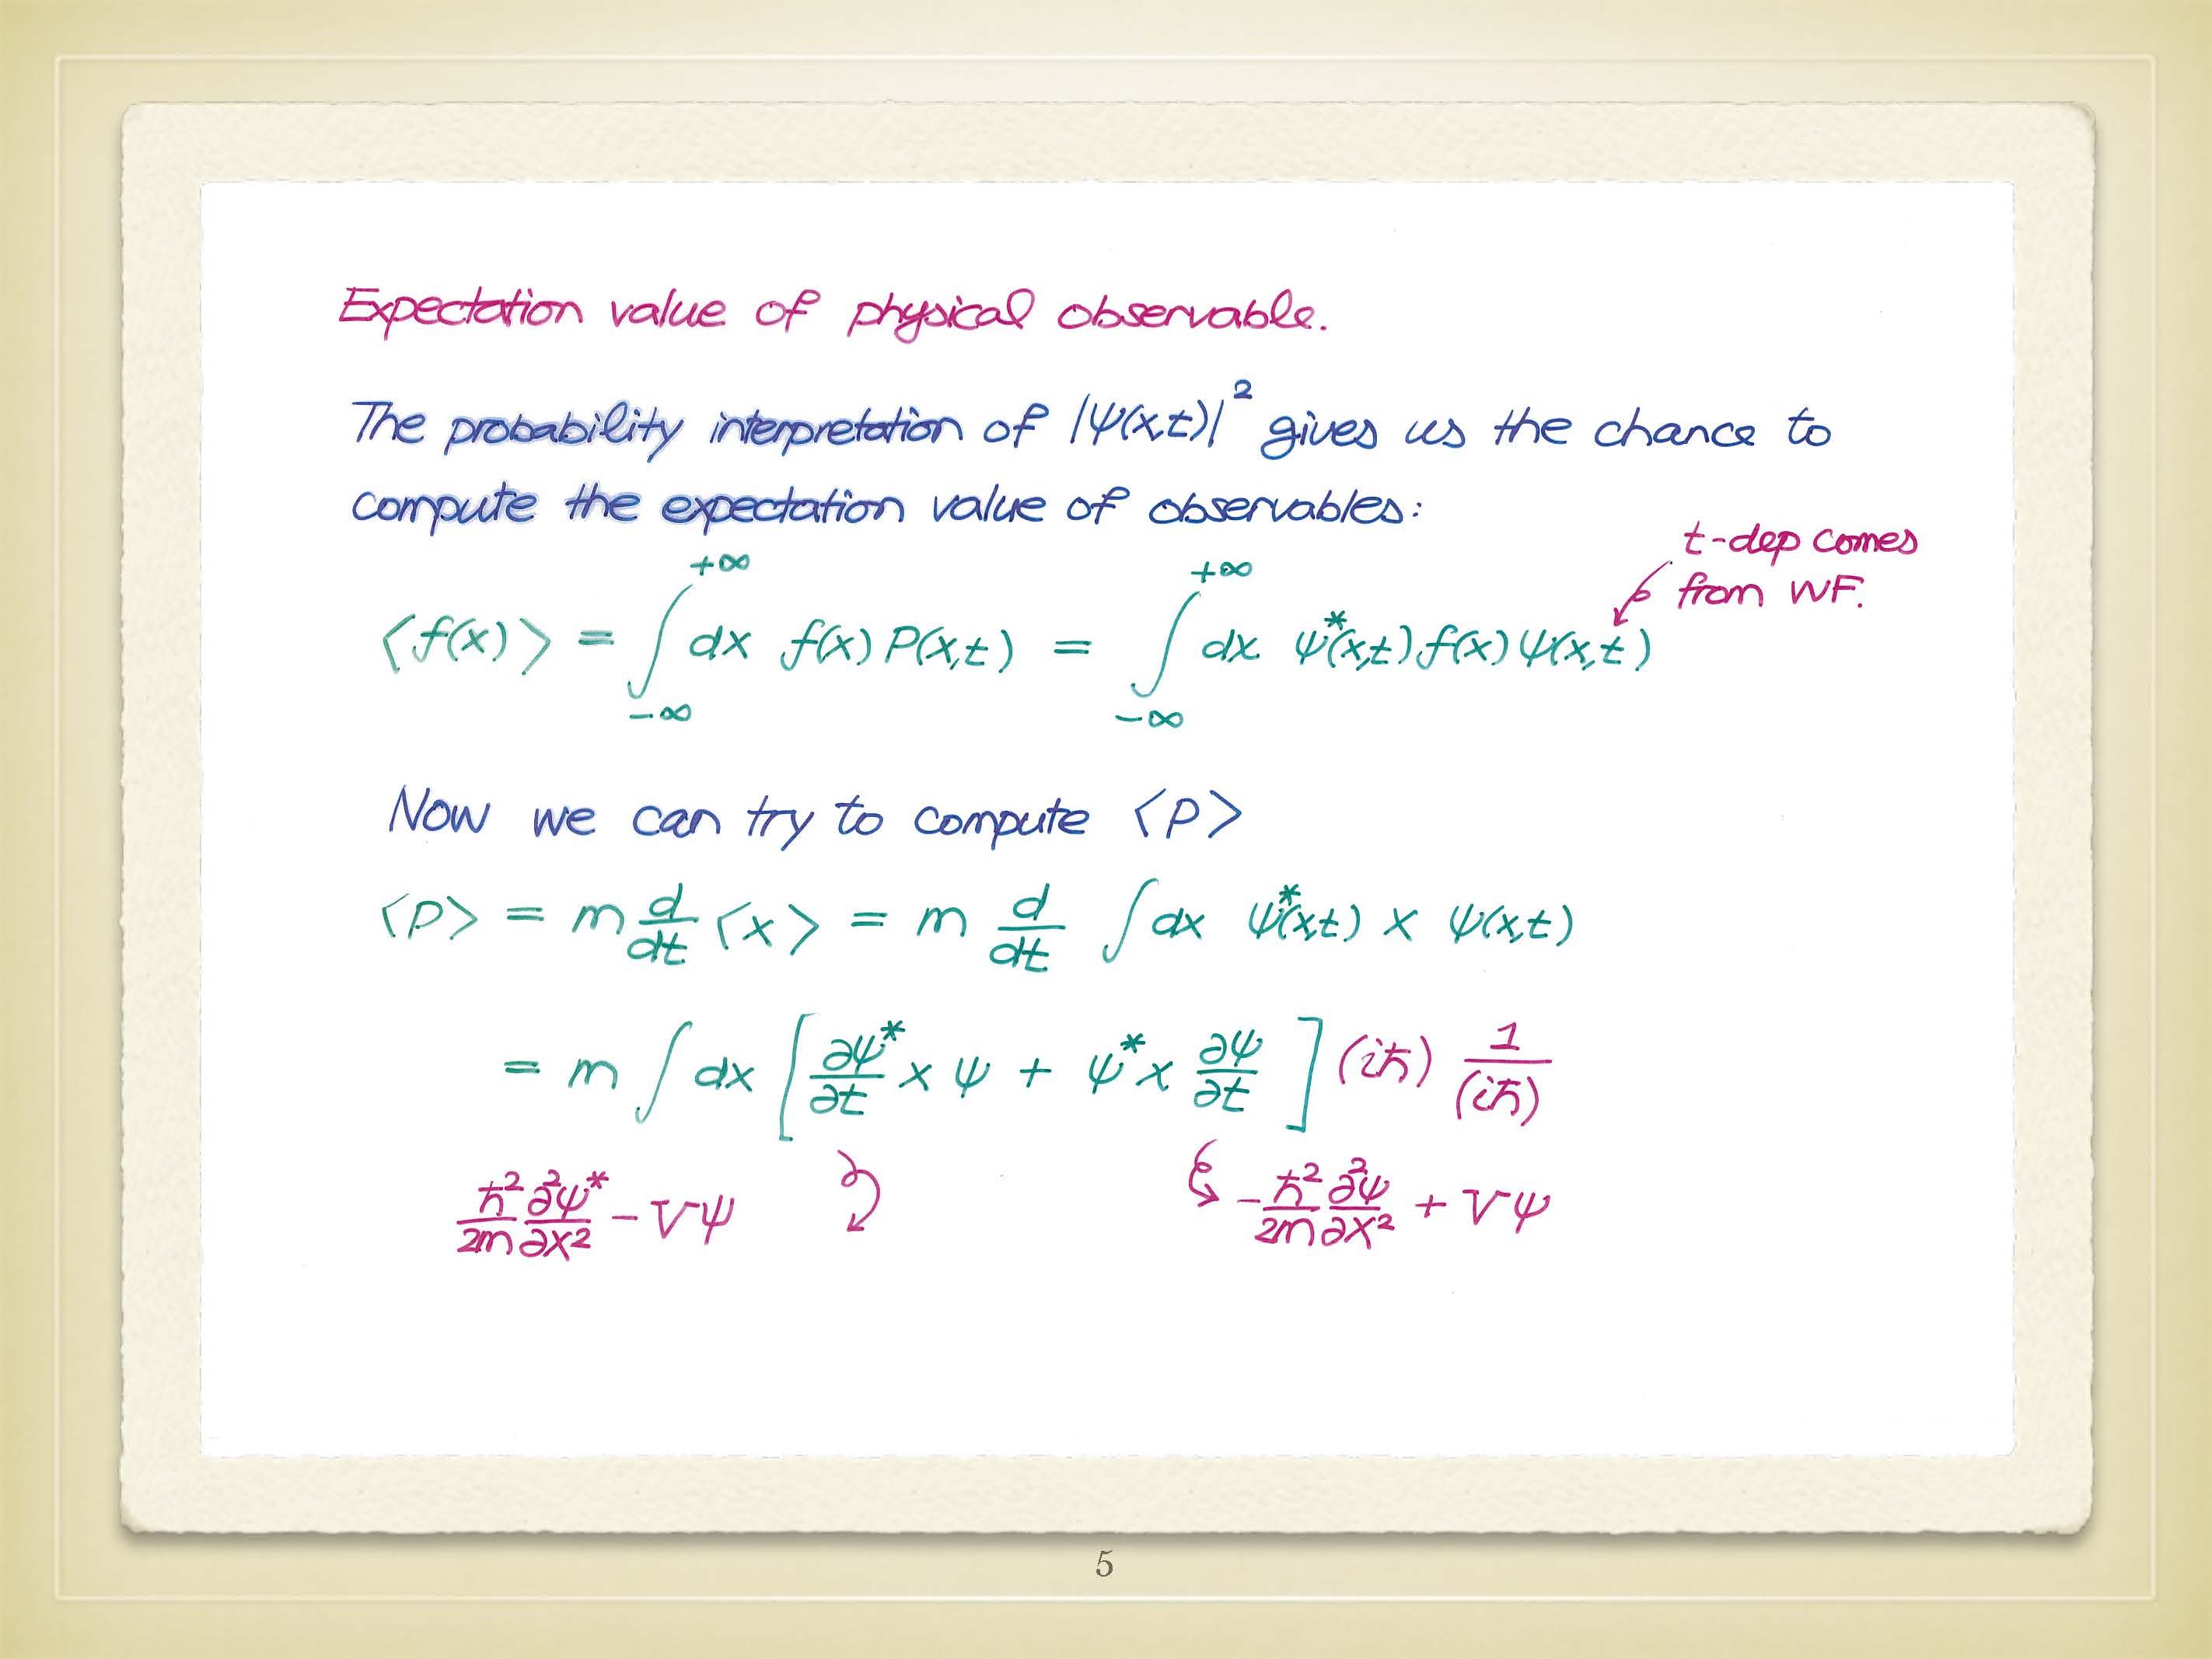 Expectation value of physical observable.
The probability interpretation of |ψ(x,t)|² gives us the chance to
compute the expectation value of observables:
t-dep comes
from WF.
⟨f(x)⟩ = ∫_{-∞}^{+∞} dx f(x) P(x,t) = ∫_{-∞}^{+∞} dx ψ*(x,t) f(x) ψ(x,t)
Now we can try to compute ⟨p⟩
⟨p⟩ = m d/dt ⟨x⟩ = m d/dt ∫ dx ψ*(x,t) x ψ(x,t)
= m ∫ dx [ ∂ψ*/∂t x ψ + ψ* x ∂ψ/∂t ] (iħ) 1/(iħ)
ħ²/2m ∂²ψ*/∂x² − Vψ −ħ²/2m ∂²ψ/∂x² + Vψ
5